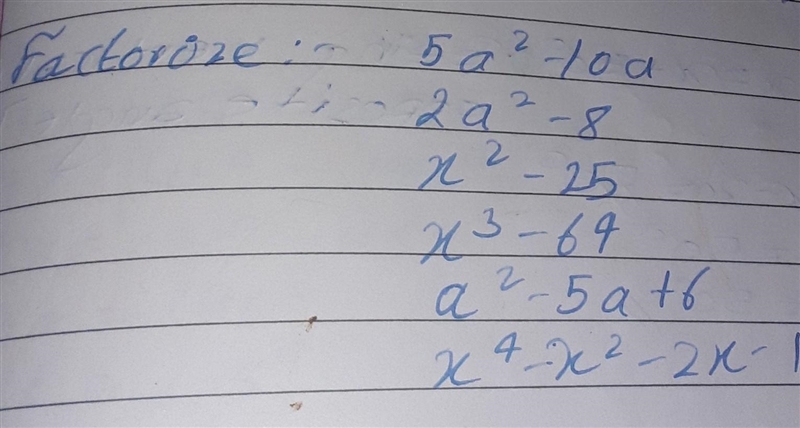 Factorize :- 5a² - 10a
2a² - 8
x² - 25
x³ - 64
a² - 5a + 6
x⁴ - x² - 2x - 1